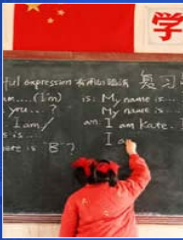 学
ful expression 有用的语法 复习
am....(I'm) is: My name is...
you...? My name is...
I am/ am: I am Kate.
is...
name is "B"? I a